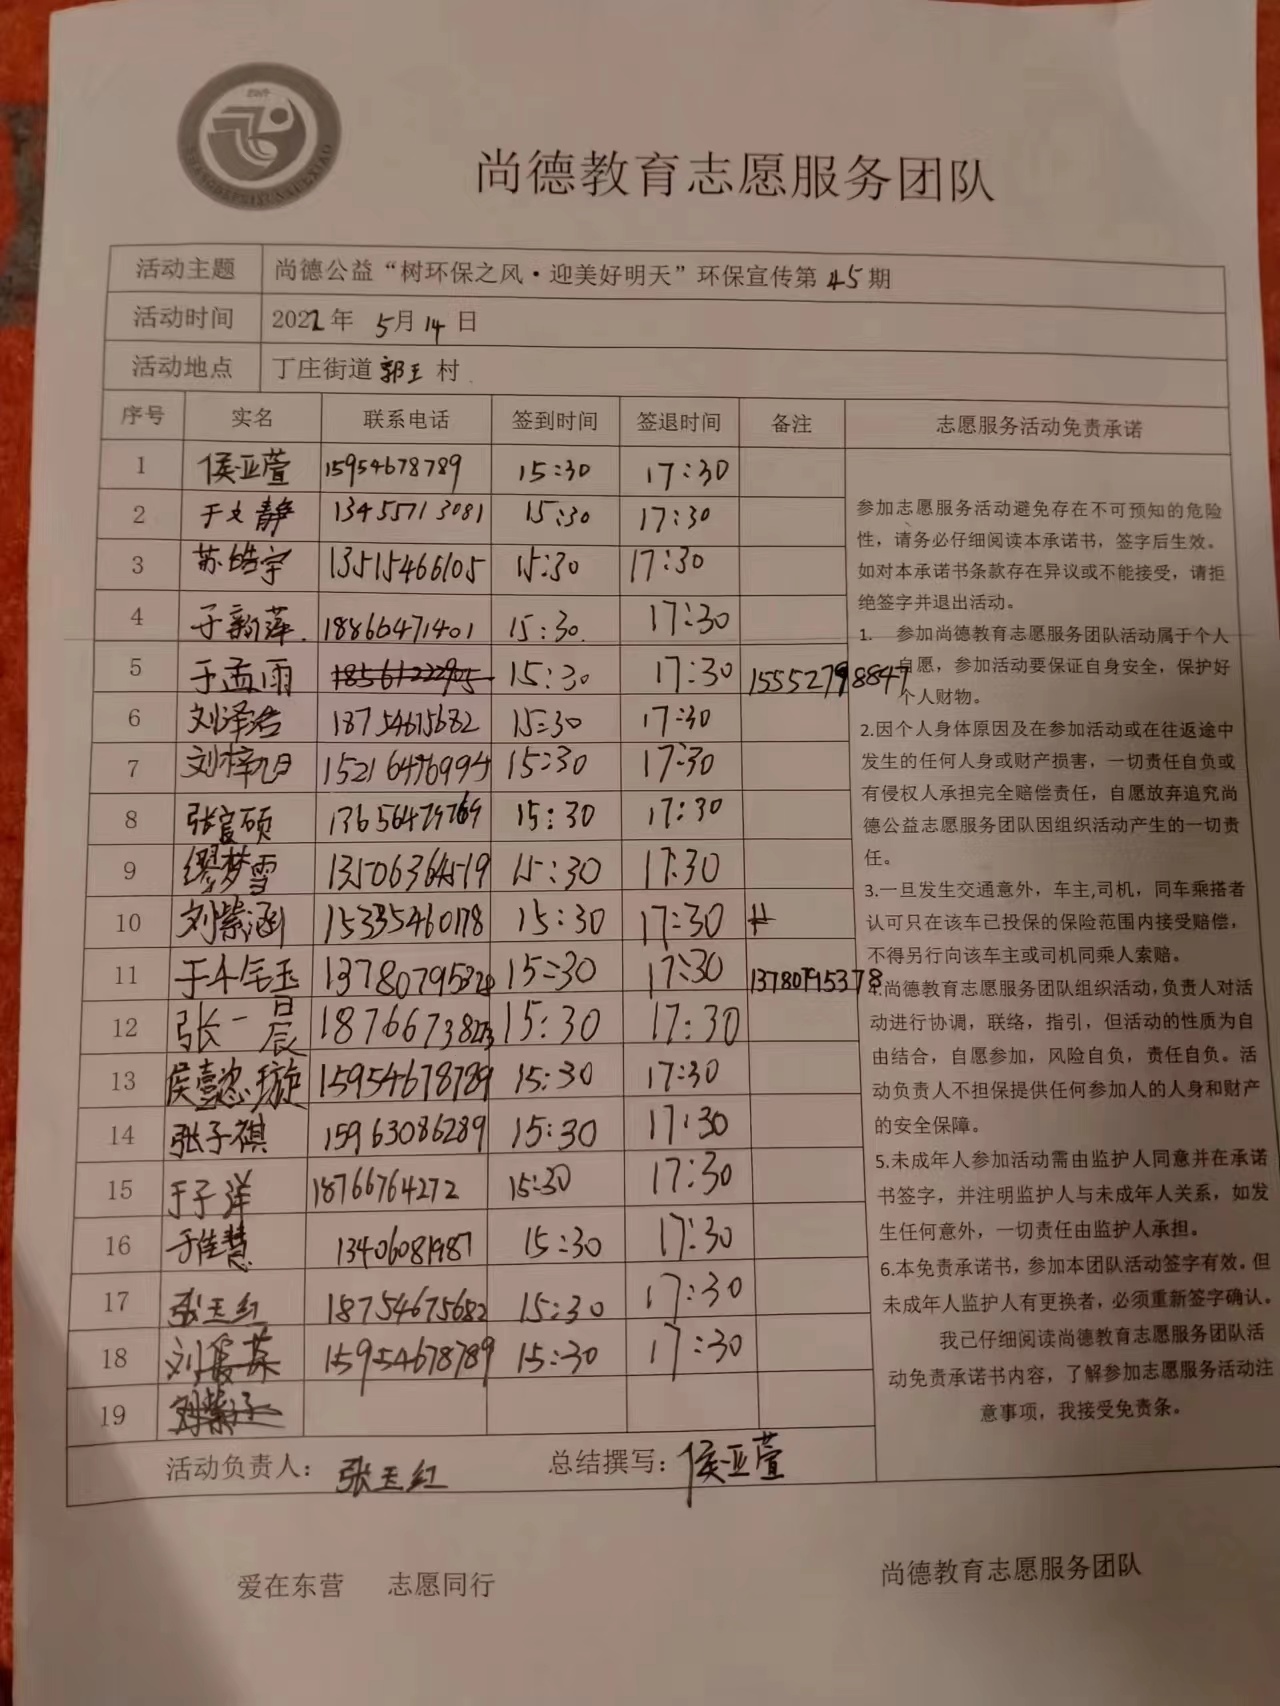 尚德教育志愿服务团队
活动主题 尚德公益“树环保之风·迎美好明天”环保宣传第45期
活动时间 2022年 5月14日
活动地点 丁庄街道郭王村
序号 实名 联系电话 签到时间 签退时间 备注 志愿服务活动免责承诺
1 侯亚萱 15954678789 15:30 17:30
2 于文静 13455713081 15:30 17:30
3 苏皓宇 13515466105 15:30 17:30
4 于新萍 18866471401 15:30 17:30
5 于孟雨 15:30 17:30 15552798847
6 刘泽浩 18754675682 15:30 17:30
7 刘梓旭 15:30 17:30
8 张宸硕 15:30 17:30
9 缪梦雪 13506364519 15:30 17:30
10 刘紫涵 15335460178 15:30 17:30
11 于 15:30 17:30 13780795378
12 张一晨 15:30 17:30
13 侯懿璇 15954678789 15:30 17:30
14 张子祺 15963086289 15:30 17:30
15 于子洋 18766764272 15:30 17:30
16 于佳慧 13406081987 15:30 17:30
17 张玉红 18754675682 15:30 17:30
18 刘 15954678789 15:30 17:30
19
参加志愿服务活动避免存在不可预知的危险
性，请务必仔细阅读本承诺书，签字后生效。
如对本承诺书条款存在异议或不能接受，请拒
绝签字并退出活动。
1. 参加尚德教育志愿服务团队活动属于个人
自愿，参加活动要保证自身安全，保护好
个人财物。
2.因个人身体原因及在参加活动或在往返途中
发生的任何人身或财产损害，一切责任自负或
有侵权人承担完全赔偿责任，自愿放弃追究尚
德公益志愿服务团队因组织活动产生的一切责
任。
3.一旦发生交通意外，车主,司机，同车乘搭者
认可只在该车已投保的保险范围内接受赔偿，
不得另行向该车主或司机同乘人索赔。
4.尚德教育志愿服务团队组织活动,负责人对活
动进行协调，联络，指引，但活动的性质为自
由结合，自愿参加，风险自负，责任自负。活
动负责人不担保提供任何参加人的人身和财产
的安全保障。
5.未成年人参加活动需由监护人同意并在承诺
书签字，并注明监护人与未成年人关系，如发
生任何意外，一切责任由监护人承担。
6.本免责承诺书，参加本团队活动签字有效。但
未成年人监护人有更换者，必须重新签字确认。
我已仔细阅读尚德教育志愿服务团队活
动免责承诺书内容，了解参加志愿服务活动注
意事项，我接受免责条。
活动负责人：张玉红 总结撰写：侯亚萱
爱在东营 志愿同行 尚德教育志愿服务团队